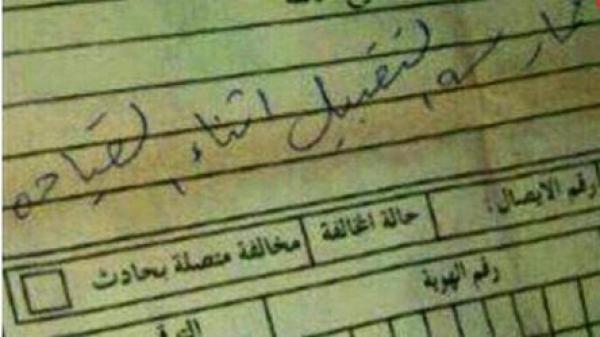 ممارسه لتقبيل اثناء لقياده
رقم الايصال : حالة المخالفة مخالفة متصلة بحادث
رقم الهوية